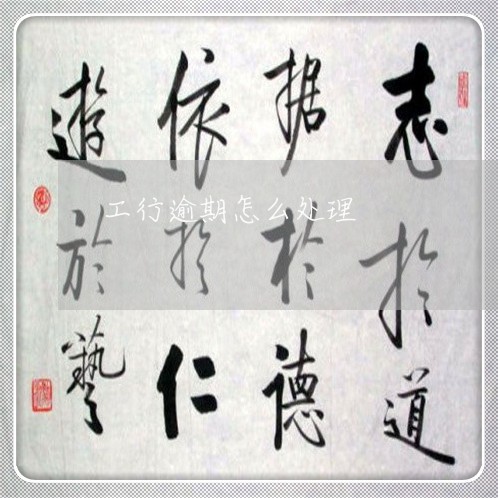 志於道
据於德
依於仁
遊於藝
工行逾期怎么处理